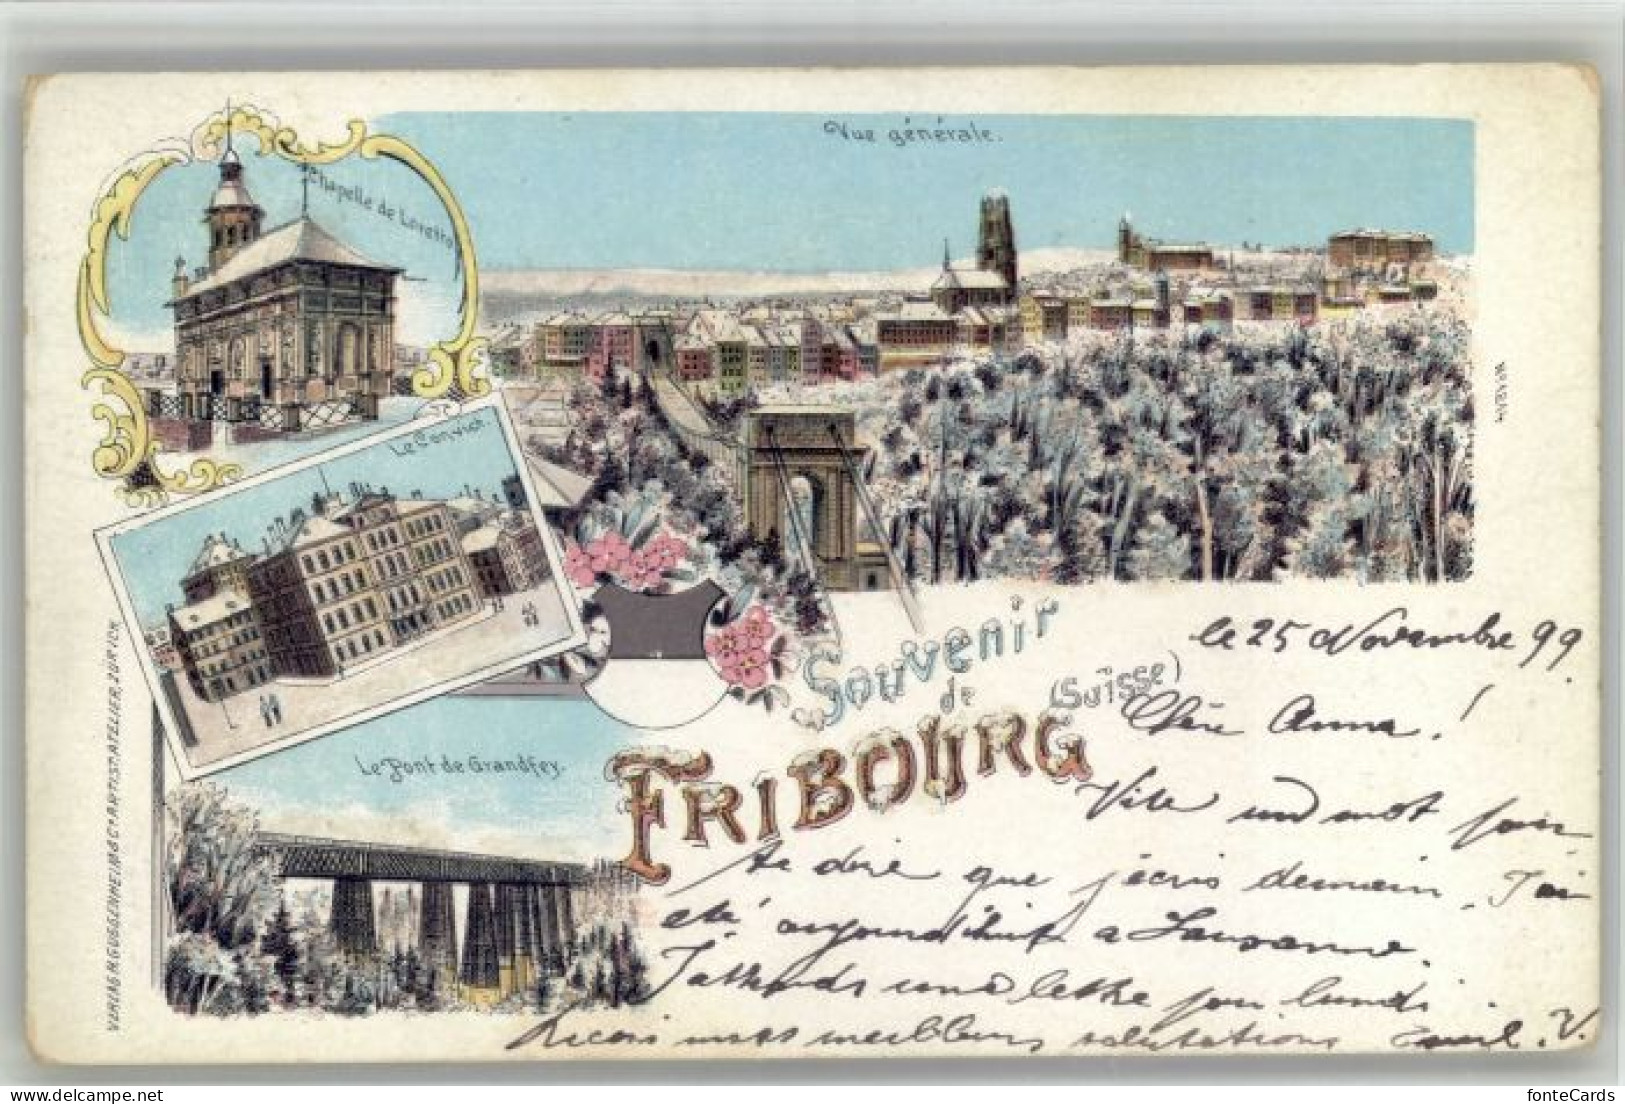 Vue générale.
Chapelle de Loretto
Le Convict.
Le Pont de Grandfey.
Souvenir
de
(Suisse)
FRIBOURG
VERLAG H. GUGGENHEIM & Cº ARTIST. ATELIER, ZÜRICH.
le 25 Novembre 99.
Chère Anna!
Vite und mot pour
te dire que j'écris demain. J'ai
été aujourd'hui a Lausanne.
J'attends une lettre pour lundi.
Reçois mes meilleurs salutations Emil. V.
fonteCards
www.delcampe.net